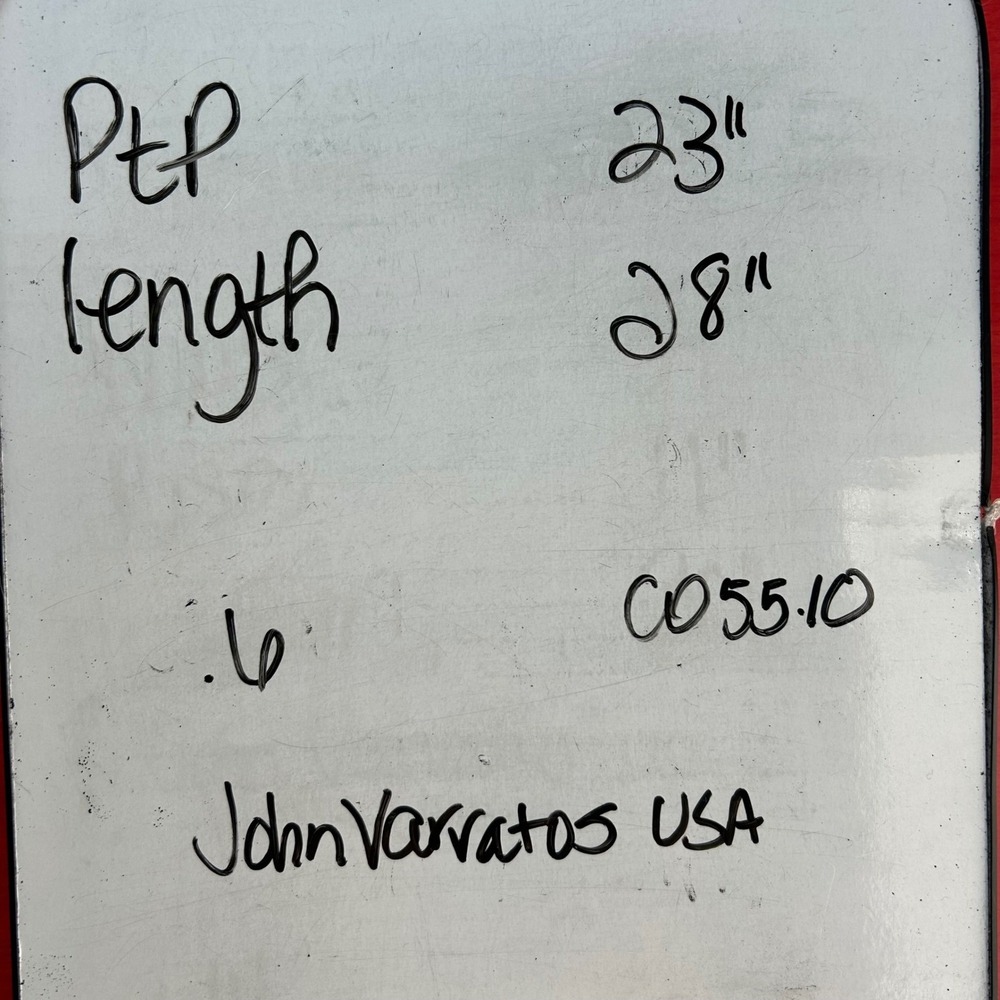 PtP 23"
length 28"
.6 CO55.10
John Varvatos USA